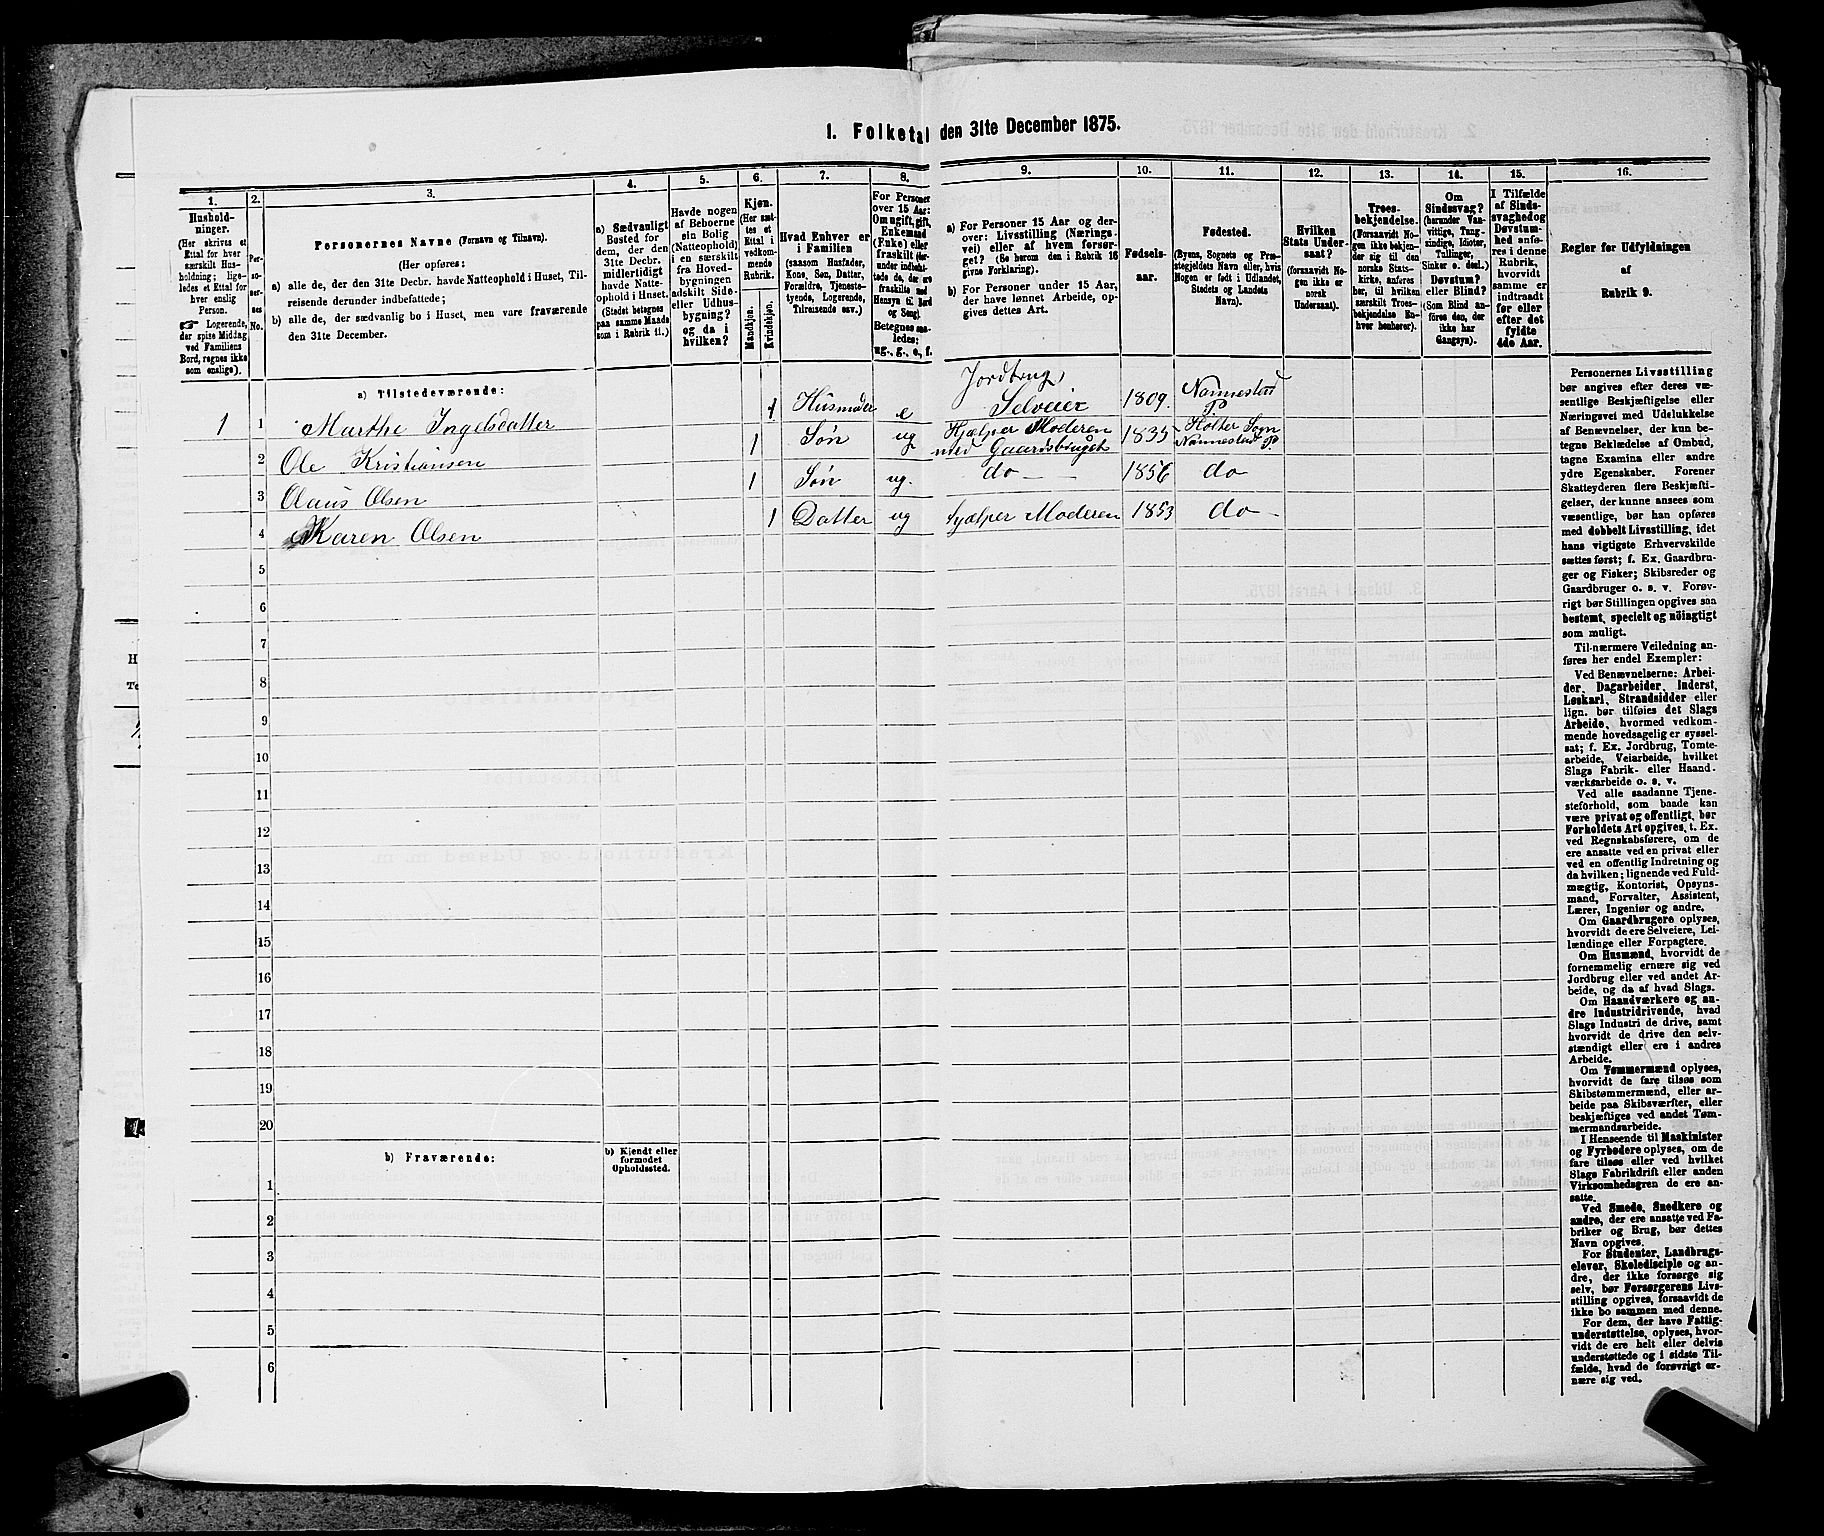 1. Folketal den 31te December 1875.
1. 2. 3. 4. 5. 6. 7. 8. 9. 10. 11. 12. 13. 14. 15. 16.
Hushold-
ninger.
(Her skrives et
Ettal for hver
særskilt Hus-
holdning; lige-
ledes et Ettal for
hver enslig
Person.
☞ Logerende,
der spise Middag
ved Familiens
Bord, regnes ikke
som enslige).
Per-
so-
ner-
nes
No.
Personernes Navne (Fornavn og Tilnavn).
(Her opføres:
a) alle de, der den 31te Decbr. havde Natteophold i Huset, Til-
reisende derunder indbefattede;
b) alle de, der sædvanlig bo i Huset, men vare fraværende
den 31te December.
a) Sædvanligt
Bosted for
dem, der den
31te Decbr.
midlertidigt
havde Natte-
ophold i Huset.
(Stedet betegnes
paa samme Maade
som i Rubrik 11.)
Havde nogen
af Beboerne
sin Bolig
(Natteophold)
i en særskilt
fra Hoved-
bygningen
adskilt Side-
eller Udhus-
bygning?
og da i
hvilken?
Kjøn.
(Her sæt-
tes et
Ettal i
vedkom-
mende
Rubrik.
Mandkjøn.
Kvindekjøn.
Hvad Enhver er
i Familien
(saasom Husfader,
Kone, Søn, Datter,
Forældre, Tjeneste-
tyende, Logerende,
Tilreisende osv.)
For Personer
over 15 Aar:
Om ugift, gift,
Enkemand
(Enke) eller
fraskilt
Betegnes saa-
ledes:
ug., g., e., f.
a) For Personer 15 Aar og der-
over: Livsstilling (Nærings-
vei) eller af hvem forsør-
get? (Se herom den i Rubrik 16
givne Forklaring).
b) For Personer under 15 Aar,
der have lønnet Arbeide, op-
gives dettes Art.
Fødsels-
aar.
Fødested.
(Byens, Sognets og Præ-
stegjeldets Navn eller, hvis
Nogen er født i Udlandet,
Stedets og Landets
Navn).
Hvilken
Stats Under-
saat?
(forsaavidt No-
gen ikke er
norsk
Undersaat).
Troes-
bekjendelse.
(Forsaavidt No-
gen ikke bekjen-
der sig til den
norske Stats-
kirke, anføres
her, til hvilken
særskilt Troes-
bekjendelse En-
hver henhører).
Om
Sindssvag?
(herunder Van-
vittige, Tung-
sindige, Idioter,
Tullinger,
Sinker o. desl.)
Døvstum?
eller Blind?
(Som Blind an-
føres den, der
ikke har
Gangsyn).
I Tilfælde
af Sinds-
svaghed og
Døvstum-
hed anfø-
res i denne
Rubrik,
hvorvidt
samme er
indtraadt
før eller
efter det
fyldte
4de Aar.
Regler for Udfyldningen
af
Rubrik 9.
a) Tilstedeværende:
1 1 Marthe Ingelsdatter 1 Husmoder e Jordbrug, Selveier 1809. Nannestad P
2 Ole Kristiansen 1 Søn ug Hjælper Moderen med Gaardsbruget 1835 Holter Sogn Nannestad P.
3 Olaus Olsen 1 Søn ug. do - 1856 do
4 Karen Olsen 1 Datter ug Hjælper Moderen 1853 do -
5
6
7
8
9
10
11
12
13
14
15
16
17
18
19
20
b) Fraværende:
b) Kjendt eller
formodet
Opholdssted.
1
2
3
4
5
6
Personernes Livsstilling
bør angives efter deres væ-
sentlige Beskjæftigelse eller
Næringsvei med Udelukkelse
af Benævnelser, der kun be-
tegne Beklædelse af Ombud,
tagne Examina eller andre
ydre Egenskaber. Forener
Skatteyderen flere Beskjæfti-
gelser, der kunne ansees som
væsentlige, bør han opføres
med dobbelt Livsstilling, idet
hans vigtigste Erhvervskilde
sættes først; f. Ex. Gaardbru-
ger og Fisker; Skibsreder og
Gaardbruger o. s. v. Forøv-
rigt bør Stillingen opgives saa
bestemt, specielt og nöiagtigt
som muligt.
Til nærmere Veiledning an-
føres her endel Exempler:
Ved Benævnelserne: Arbei-
der, Dagarbeider, Inderst,
Løskarl, Strandsidder eller
lign. bør tilføies det Slags
Arbeide, hvormed vedkom-
mende hovedsagelig er syssel-
sat; f. Ex. Jordbrug, Tomte-
arbeide, Veiarbeide, hvilket
Slags Fabrik- eller Haand-
værksarbeide o. s. v.
Ved alle saadanne Tjene-
steforhold, som baade kan
være privat og offentligt, bør
Forholdets Art opgives, t. Ex.
ved Regnskabsførere, om de
ere ansatte ved en privat eller
ved en offentlig Indretning og
da hvilken; lignende ved Fuld-
mægtig, Kontorist, Opsyns-
mand, Forvalter, Assistent,
Lærer, Ingeniør og andre.
Om Gaardbrugere oplyses,
hvorvidt de ere Selveiere, Lei-
lændinge eller Forpagtere.
Om Husmænd, hvorvidt de
fornemmelig ernære sig ved
Jordbrug eller ved andet Ar-
beide, og da af hvad Slags.
Om Haandværkere og an-
dre Industridrivende, hvad
Slags Industri de drive, samt
hvorvidt de drive den selv-
stændigt eller ere i andres
Arbeide.
Om Tømmermænd oplyses,
hvorvidt de fare tilsøs som
Skibstømmermænd, eller ar-
beide paa Skibsværfter, eller
beskjæftiges ved andet Tøm-
mermandsarbeide.
I Henseende til Maskinister
og Fyrbødere oplyses, om de
fare tilsøs eller ved hvilket
Slags Fabrikdrift eller anden
Virksomhedsgren de ere an-
satte.
Ved Smede, Snedkere og
andre, der ere ansatte ved Fa-
briker og Brug, bør dettes
Navn opgives.
For Studenter, Landbrugs-
elever, Skoledisciple og an-
dre, der ikke forsørge sig
selv, bør Forsørgerens Livs-
stilling opgives, forsaavidt de
ikke bo sammen med denne.
For dem, der have Fattig-
understøttelse, oplyses, hvor-
vidt de ere helt eller delvis
understøttede og i sidste Til-
fælde, hvad de forøvrigt er-
nære sig ved.